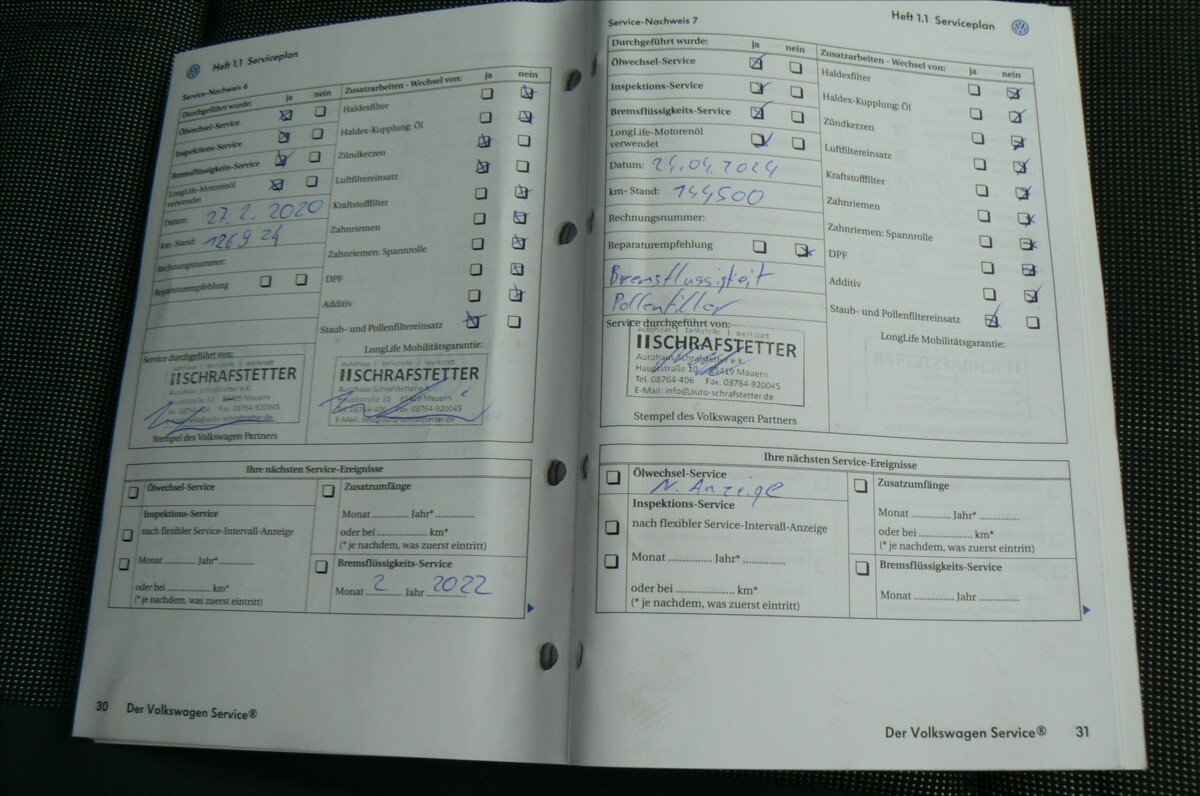 Heft 1.1 Serviceplan
Service-Nachweis 6
Durchgeführt wurde: ja nein
Ölwechsel-Service
Inspektions-Service
Bremsflüssigkeits-Service
LongLife-Motorenöl
verwendet
Datum: 27.2.2020
km-Stand: 126924
Rechnungsnummer:
Reparaturempfehlung
Zusatzarbeiten - Wechsel von: ja nein
Haldexfilter
Haldex-Kupplung: Öl
Zündkerzen
Luftfiltereinsatz
Kraftstofffilter
Zahnriemen
Zahnriemen: Spannrolle
DPF
Additiv
Staub- und Pollenfiltereinsatz
Service durchgeführt von:
autohaus | tankstelle | werkstatt
SCHRAFSTETTER
Autohaus Schrafstetter e.K.
Hauptstraße 10 85419 Mauern
Tel. 08764-406 Fax. 08764-920045
E-Mail: info@auto-schrafstetter.de
Stempel des Volkswagen Partners
LongLife Mobilitätsgarantie:
autohaus | tankstelle | werkstatt
SCHRAFSTETTER
Autohaus Schrafstetter e.K.
Hauptstraße 10 85419 Mauern
Tel. 08764-406 Fax. 08764-920045
E-Mail: info@auto-schrafstetter.de
Ihre nächsten Service-Ereignisse
Ölwechsel-Service
Inspektions-Service
nach flexibler Service-Intervall-Anzeige
Monat ............ Jahr* ............
oder bei .................... km*
(* je nachdem, was zuerst eintritt)
Zusatzumfänge
Monat ............ Jahr* ............
oder bei .................... km*
(* je nachdem, was zuerst eintritt)
Bremsflüssigkeits-Service
Monat 2 Jahr 2022
30 Der Volkswagen Service®
Heft 1.1 Serviceplan
Service-Nachweis 7
Durchgeführt wurde: ja nein
Ölwechsel-Service
Inspektions-Service
Bremsflüssigkeits-Service
LongLife-Motorenöl
verwendet
Datum: 24.04.2024
km- Stand: 144500
Rechnungsnummer:
Reparaturempfehlung
Bremsflussigkeit
Pollenfilter
Zusatzarbeiten - Wechsel von: ja nein
Haldexfilter
Haldex-Kupplung: Öl
Zündkerzen
Luftfiltereinsatz
Kraftstofffilter
Zahnriemen
Zahnriemen: Spannrolle
DPF
Additiv
Staub- und Pollenfiltereinsatz
Service durchgeführt von:
autohaus | tankstelle | werkstatt
SCHRAFSTETTER
Autohaus Schrafstetter e.K.
Hauptstraße 10 85419 Mauern
Tel. 08764-406 Fax. 08764-920045
E-Mail: info@auto-schrafstetter.de
Stempel des Volkswagen Partners
LongLife Mobilitätsgarantie:
Ihre nächsten Service-Ereignisse
Ölwechsel-Service
N. Anzeige
Inspektions-Service
nach flexibler Service-Intervall-Anzeige
Monat ............ Jahr* ............
oder bei .................... km*
(* je nachdem, was zuerst eintritt)
Zusatzumfänge
Monat ............ Jahr* ............
oder bei .................... km*
(* je nachdem, was zuerst eintritt)
Bremsflüssigkeits-Service
Monat ............ Jahr ............
Der Volkswagen Service® 31